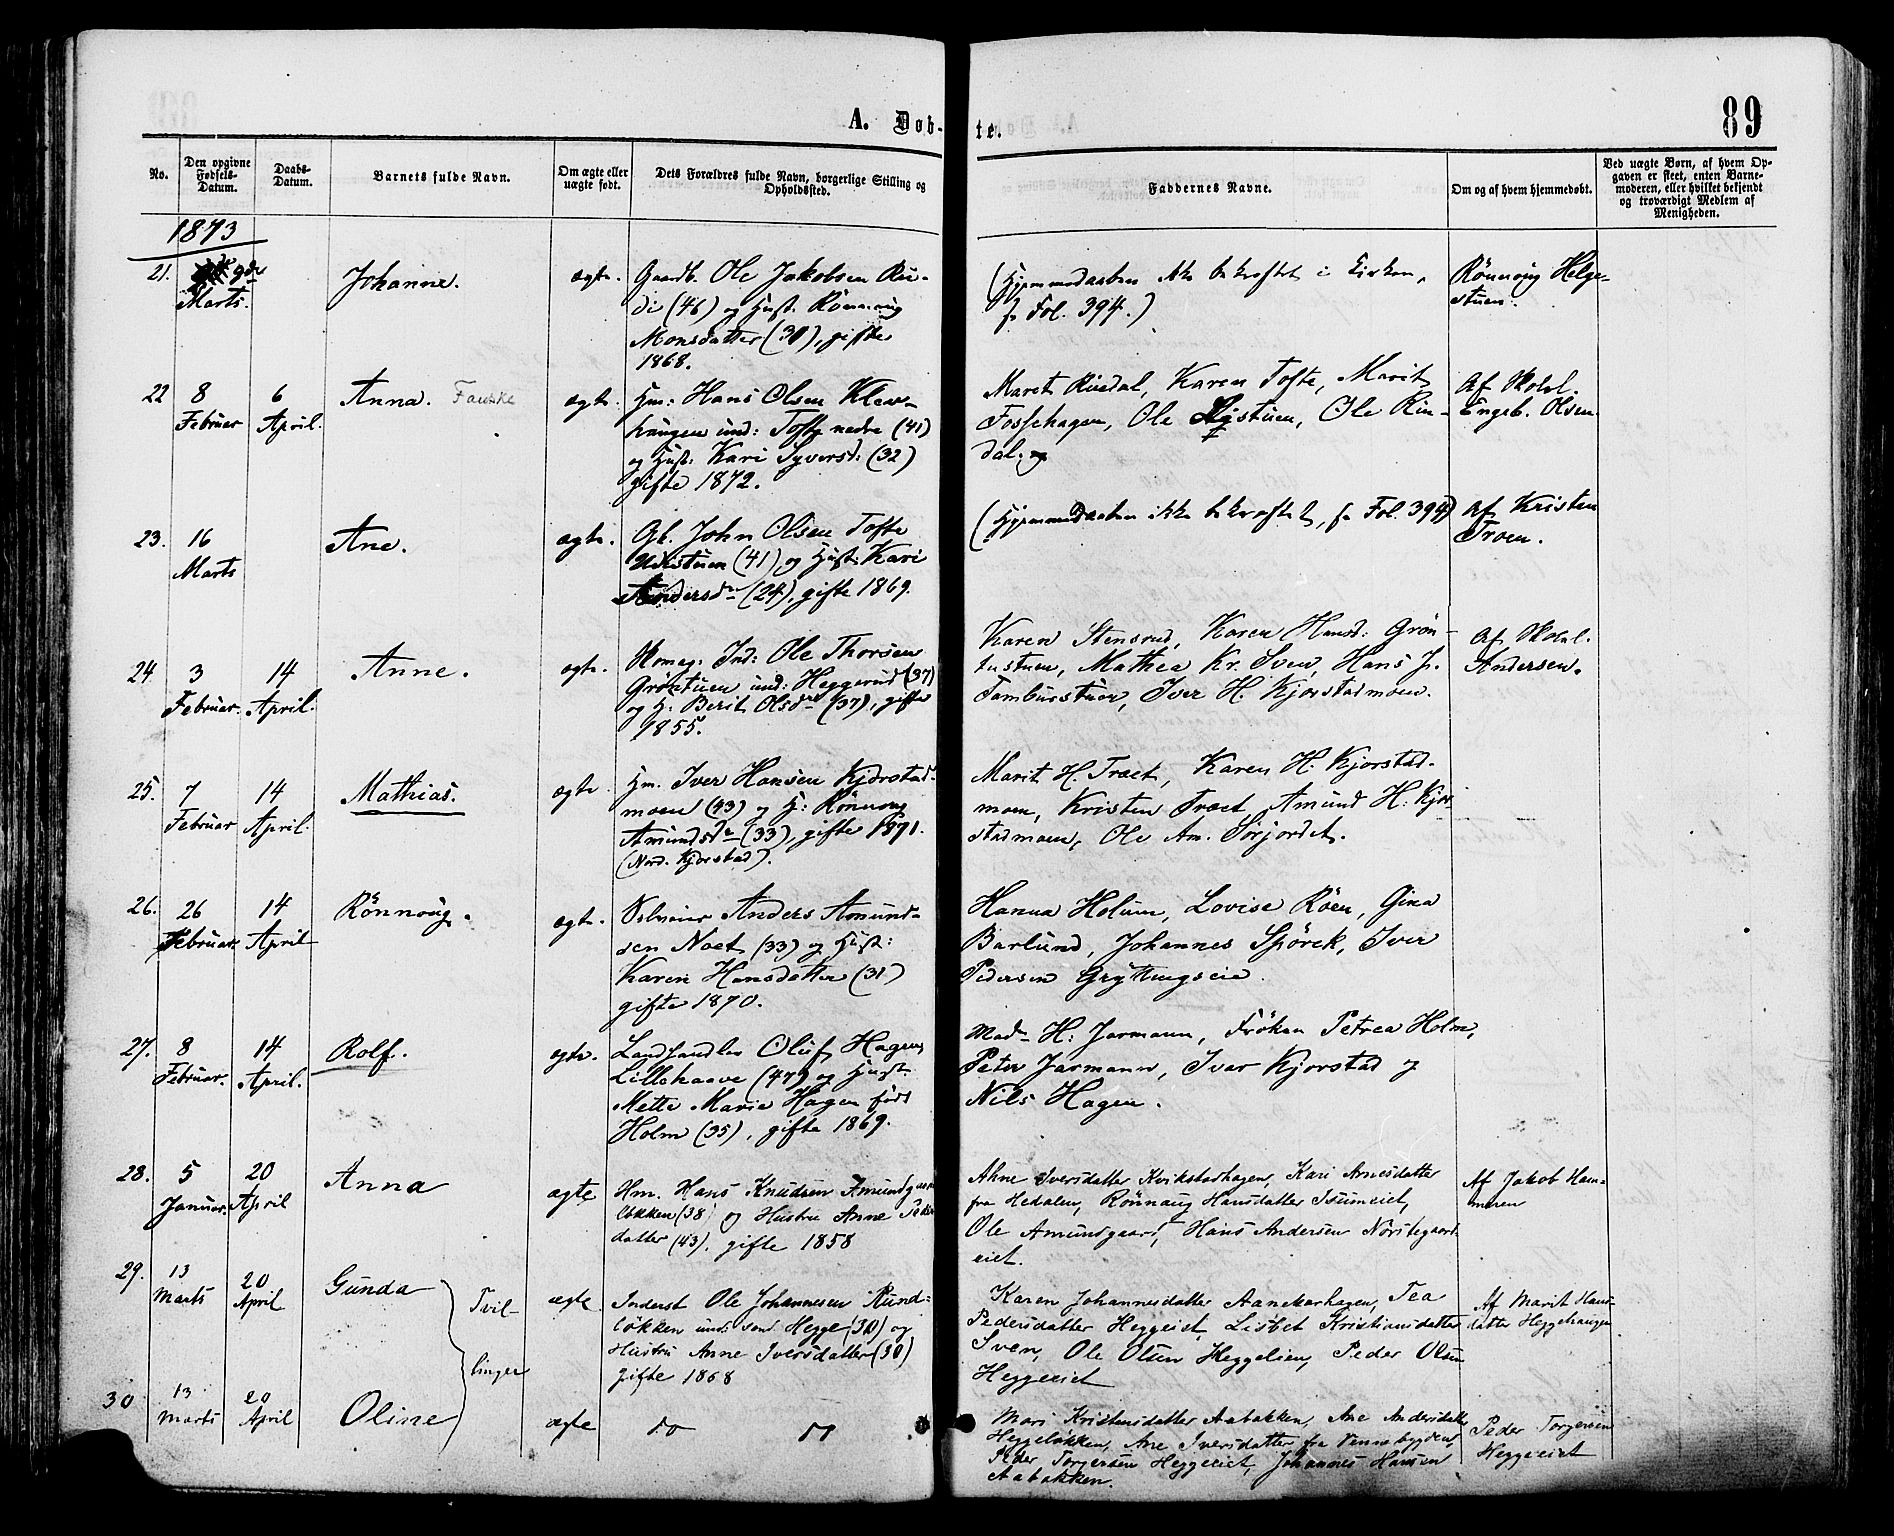 89
A. Døb-te.
No.
Den opgivne Fødsels-Datum.
Daabs-Datum.
Barnets fulde Navn.
Om ægte eller uægte født.
Dets Forældres fulde Navn, borgerlige Stilling og Opholdssted.
Faddernes Navne.
Om og af hvem hjemmedøbt.
Ved uægte Børn, af hvem Opgaven er skeet, enten Barnemoderen, eller hvilket bekjendt og troværdigt Medlem af Menigheden.
1873
21. 9de Marts.
Johanne.
ægte.
Gaardb. Ole Jakobsen Ru-
di (46) og Hust. Rönnoug
Monsdatter (30), gifte
1868.
(Hjemmedaaben ikke bekræftet i Kirken,
fr Fol. 394.)
Rönnoug Helge-
stuen.
22 8 Februar 6 April.
Anna. Fauske
ægte.
Hm: Hans Olsen Klev-
haugen und: Tofte nedre (41)
og Hust: Kari Syversd: (32)
gifte 1872.
Maret Rindal, Karen Tofte, Marit
Fossehagen, Ole Nystuen, Ole Rin-
dal.
Af Skolel.
Engeb. Olsen
23. 16 Marts
Ane.
ægte.
Gb. John Olsen Tofte
Ulvistuen (41) og Hust: Kari
Andersdr (24), gifte 1869.
(Hjemmedaaben ikke bekræftet, fr Fol. 394)
Af Kristen
Troen.
24. 3 Februar. 14 April.
Anne.
ægte.
Skomag: Ind: Ole Thorsen
Gröntuen und: Heggerud (37)
og H. Berit Olsdr (37), gifte
1855.
Karen Stensrud, Karen Hansd: Grön-
tustuen, Mathea Kr. Sven, Hans J.
Tambursstuen, Iver H. Kjorstadmoen.
Af Skolel.
Andersen.
25. 7 Februar 14 April.
Mathias.
ægte.
Hm. Iver Hansen Kjørstad-
moen (43) og H: Rönnoug
Amundsdr (33), gifte 1871.
(Nord. Kjorstad).
Marit H. Træet, Karen H. Kjorstad-
moen, Kristen Træet, Amund H. Kjor-
stadmoen, Ole Am. Sörjordet.
26. 26 Februar 14 April
Rönnoug.
ægte.
Selveier Anders Amund-
sen Noet (33) og Hust:
Karen Hansdatter (31)
gifte 1870.
Hanna Holum, Lovise Röen, Gina
Barlund, Johannes Spörck, Iver
Pedersen Gryttingseie.
27. 8 Februar. 14 April.
Rolf.
ægte.
Landhandler Oluf Hagen
Lillehaave (47) og Hust.
Mette Marie Hagen född
Holm (35), gifte 1869.
Mad. H: Jarmann, Fröken Petrea Holm,
Peter Jarmann, Ivar Kjorstad og
Nils Hagen.
28. 5 Januar. 20 April
Anna
ægte
Hm. Hans Knudsen Amundgaard
lökken (38) og Hustru Anne Peder
datter (43). gifte 1858
Ahne Iversdatter Kvikstadhagen, Kari Arnesdatter
fra Hedalen, Rönnaug Hansdatter Isumeiet,
Ole Amundgaard, Hans Andersen Nörstegaard-
eiet.
Af Jakob Ham-
meren
29. 13 Marts 20 April
Gunda
Tvil
linger
ægte
Inderst Ole Johannesen Rund-
lökken und: sönd. Hegge (30) og
Hustru Anne Iversdatter (30)
gifte 1868
Karen Johannesdatter Aanekerhagen, Tea
Pedersdatter Heggeiet, Lisbet Kristiansdatter
Sven, Ole Olsen Heggelien, Peder Olsen
Heggeeiet
Af Marit Hans-
datter Heggehaugen
30 13 Marts 20 April
Oline
ægte
do do
Mari Kristensdatter Aabakken, Ane Andersdatter
Heggelökken, Ane Iversdatter fra Vennebygden,
Peder Torgersen Heggeeiet, Johannes Hansen
Aabakken.
Peder Torgersen
Heggeeiet